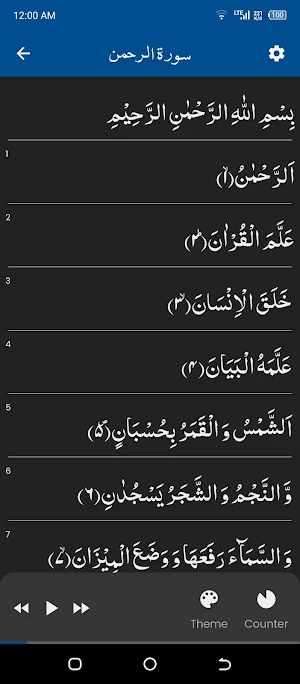 12:00 AM LTE 221 K/S 100
سورة الرحمن
بِسْمِ اللّٰهِ الرَّحْمٰنِ الرَّحِيْمِ
1
اَلرَّحْمٰنُ(۱ۙ)
2
عَلَّمَ الْقُرْاٰنَ(۲ؕ)
3
خَلَقَ الْاِنْسَانَ(۳ۙ)
4
عَلَّمَهُ الْبَيَانَ(۴)
5
اَلشَّمْسُ وَ الْقَمَرُ بِحُسْبَانٍ(۵۪)
6
وَّ النَّجْمُ وَ الشَّجَرُ يَسْجُدٰنِ(۶)
7
وَ السَّمَآءَ رَفَعَهَا وَ وَضَعَ الْمِيْزَانَ(۷ۙ)
Theme Counter